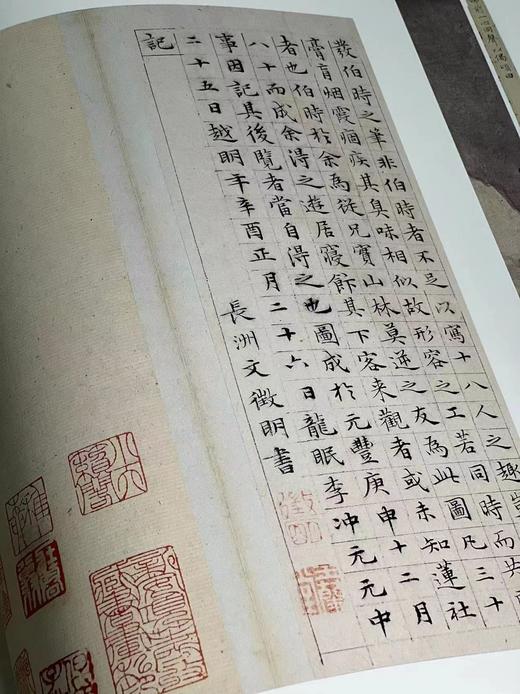 發伯時之筆非伯時者不足以寫十八人之趣豈
膏肓烟霞痼疾其臭味相似故形容之工若同時而共
者也伯時於余為從兄實山林莫逆之友為此圖凡三十
八十而成余得之遊居寢飾其下客來觀者或未知蓮社
事因記其後覽者當自得之也圖成於元豐庚申十二月
二十五日越明年辛酉正月二十六日龍眠李沖元元中
記
長洲文徵明書
徵明